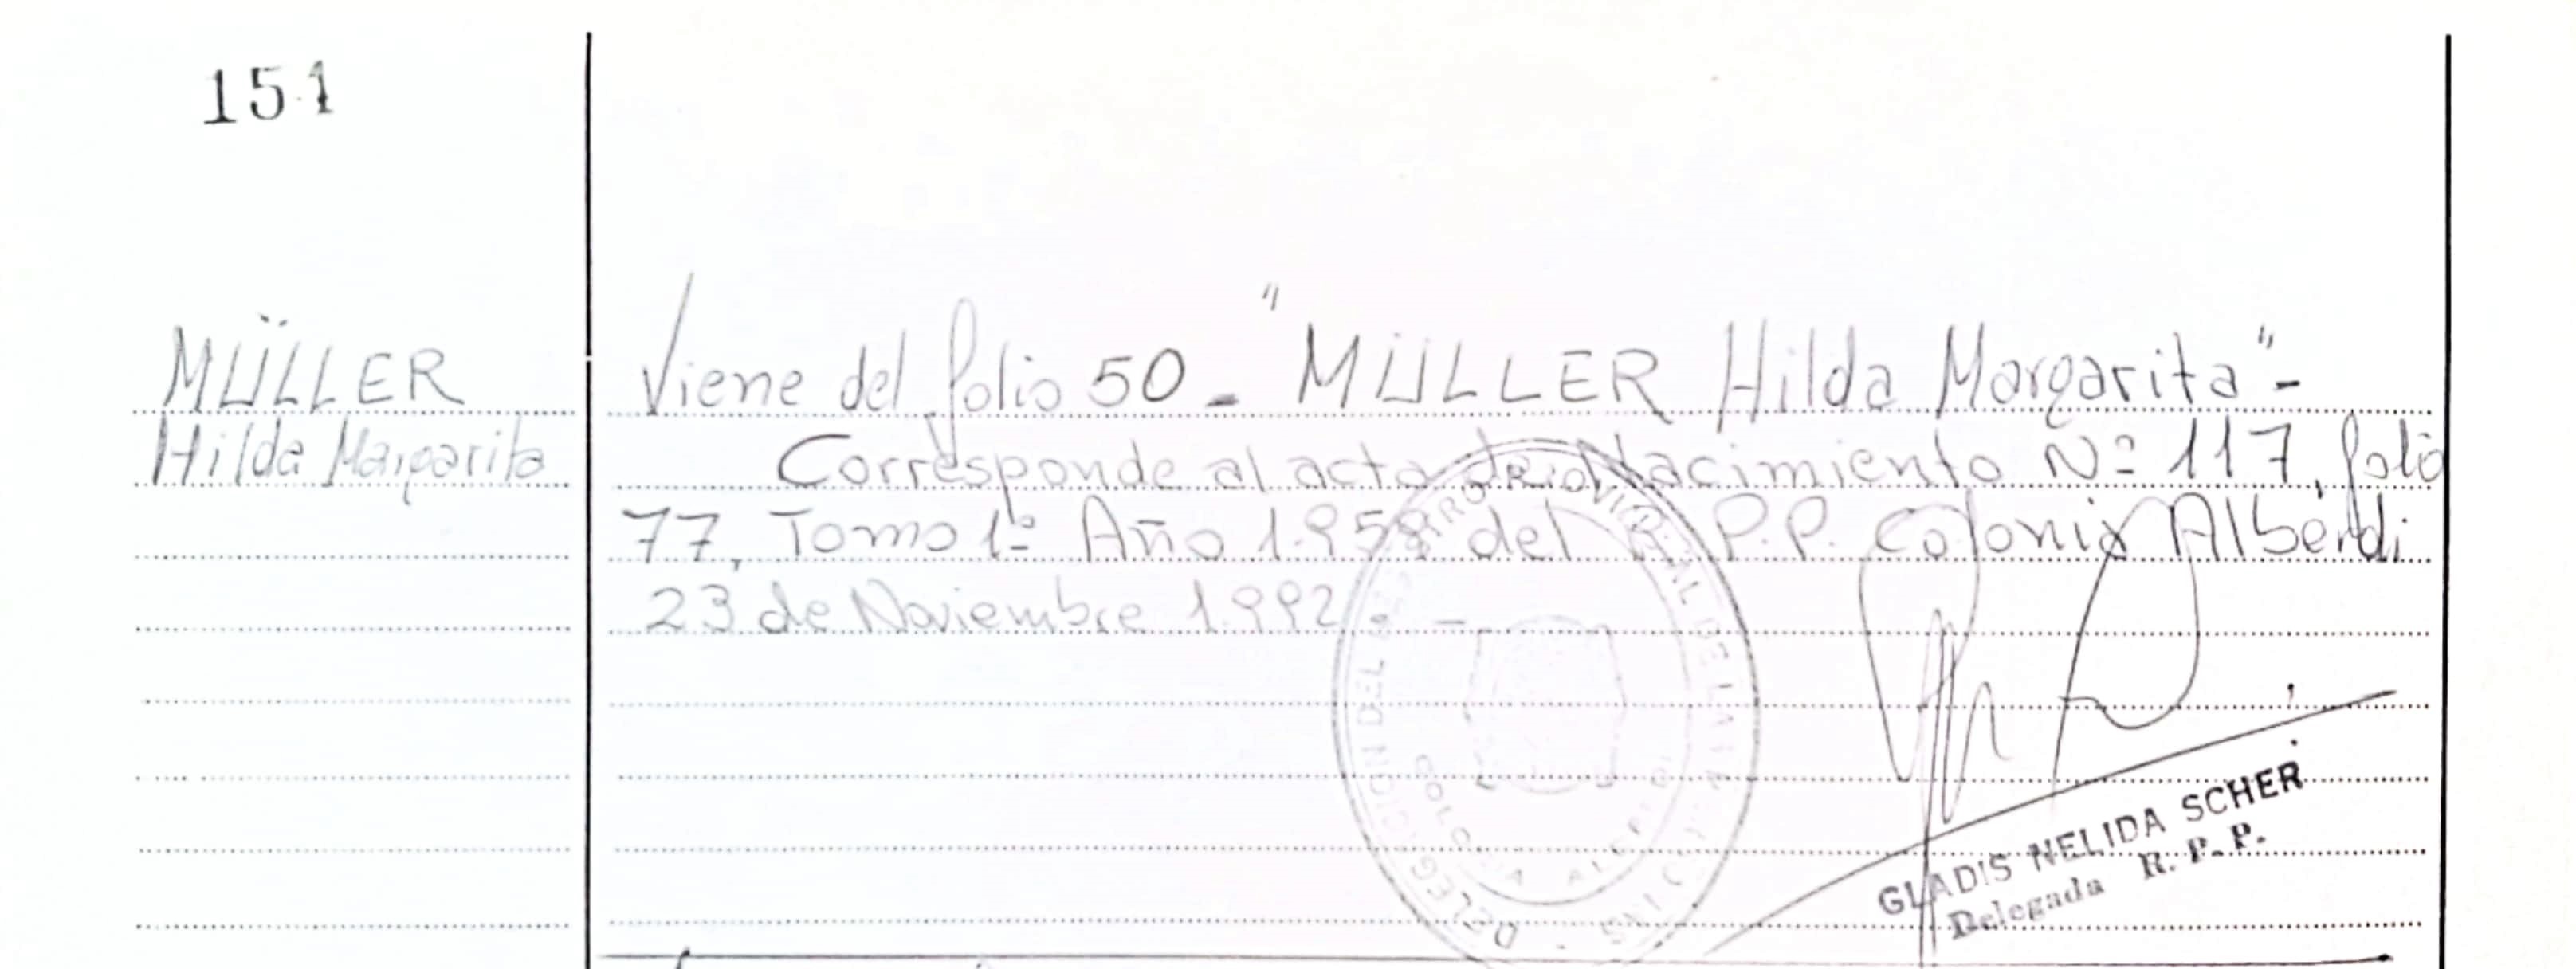 151
MÜLLER
Hilda Margarita
Viene del folio 50 - "MÜLLER Hilda Margarita" -
Corresponde al acta de Nacimiento Nº 117, folio
77, Tomo 1º Año 1.958 del R.P.P. Colonia Alberdi
23 de Noviembre 1.992. -
DELEGACION DEL REGISTRO PROVINCIAL DE LAS PERSONAS
COLONIA ALBERDI
GLADIS NELIDA SCHER
Delegada R. P. P.